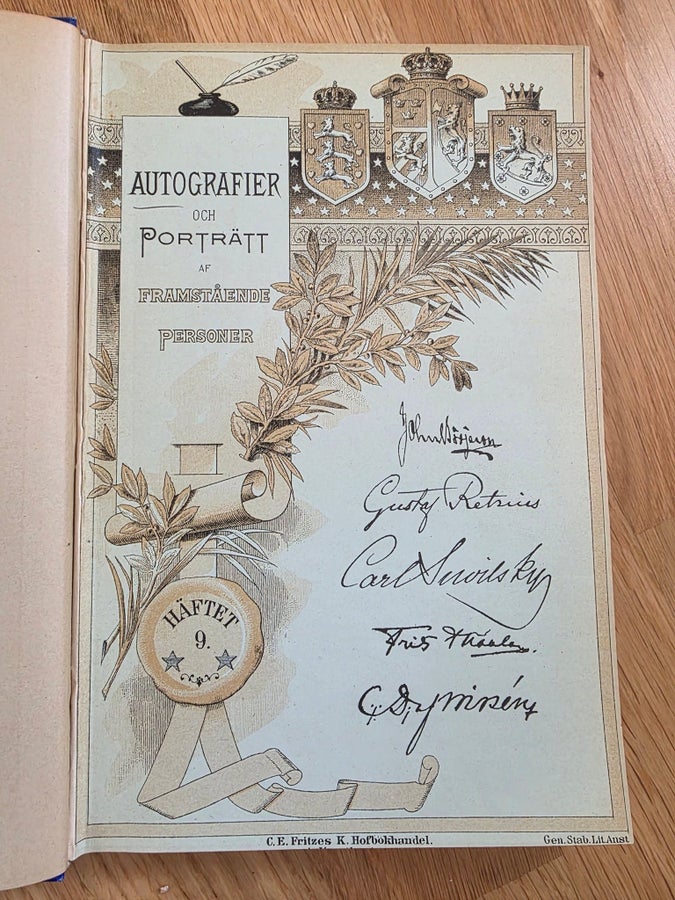 AUTOGRAFIER
OCH
PORTRÄTT
AF
FRAMSTÅENDE
PERSONER
John Börjeson
Gustaf Retzius
Carl Snoilsky
Frits Thaulow.
C. D. af Wirsén
HÄFTET
9.
C. E. Fritzes K. Hofbokhandel.
Gen. Stab. Lit. Anst